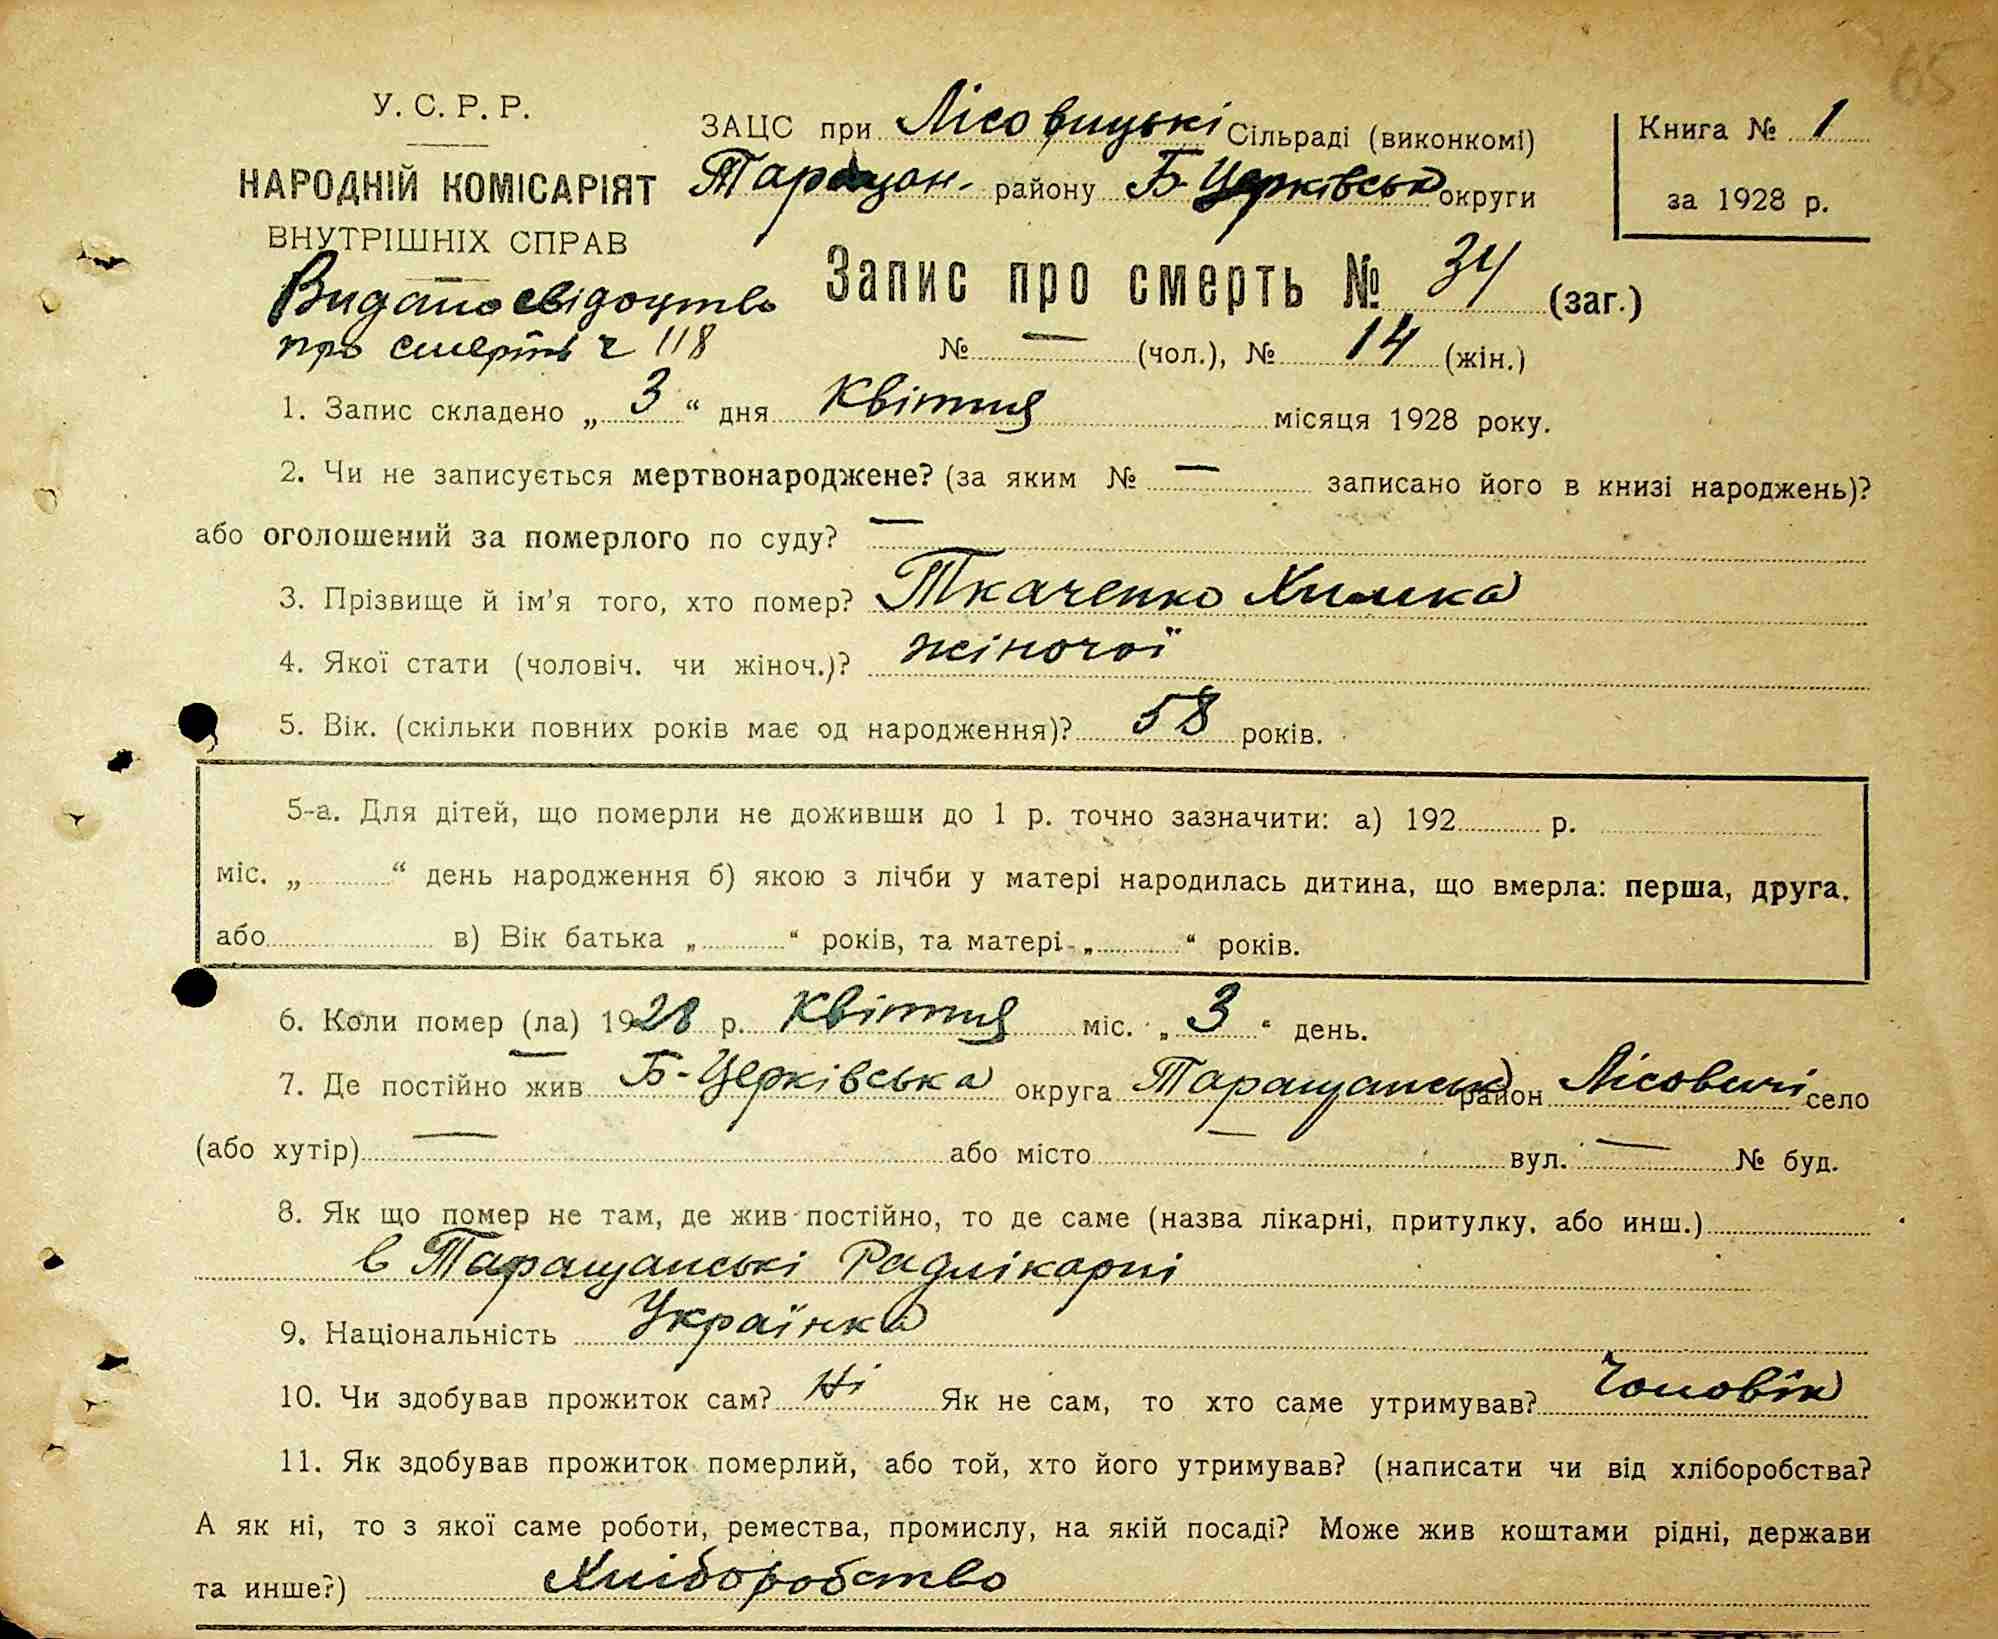 65
У. С. Р. Р.
НАРОДНІЙ КОМІСАРІЯТ
ВНУТРІШНІХ СПРАВ
Видано свідоцтво
про смерть ч 118
ЗАЦС при Лісовицькі Сільраді (виконкомі)
Таращан. району Б-Церківськ округи
Книга № 1
за 1928 р.
Запис про смерть № 34 (заг.)
№ — (чол.), № 14 (жін.)
1. Запис складено „ 3 “ дня Квітня місяця 1928 року.
2. Чи не записується мертвонароджене? (за яким № — записано його в книзі народжень)?
або оголошений за померлого по суду? —
3. Прізвище й ім'я того, хто помер? Ткаченко Химка
4. Якої стати (чоловіч. чи жіноч.)? жіночої
5. Вік. (скільки повних років має од народження)? 58 років.
5-а. Для дітей, що померли не доживши до 1 р. точно зазначити: а) 192 р.
міс. „ “ день народження б) якою з лічби у матері народилась дитина, що вмерла: перша, друга,
або в) Вік батька „ “ років, та матері „ “ років.
6. Коли помер (ла) 1928 р. Квітня міс. „ 3 “ день.
7. Де постійно жив Б-Церківська округа Таращанськ район Лісовичі село
(або хутір) — або місто — вул. — № буд.
8. Як що помер не там, де жив постійно, то де саме (назва лікарні, притулку, або инш.)
в Таращанські Радлікарні
9. Національність Українка
10. Чи здобував прожиток сам? Ні Як не сам, то хто саме утримував? Чоловік
11. Як здобував прожиток померлий, або той, хто його утримував? (написати чи від хліборобства?
А як ні, то з якої саме роботи, ремества, промислу, на якій посаді? Може жив коштами рідні, держави
та инше?) Хліборобство